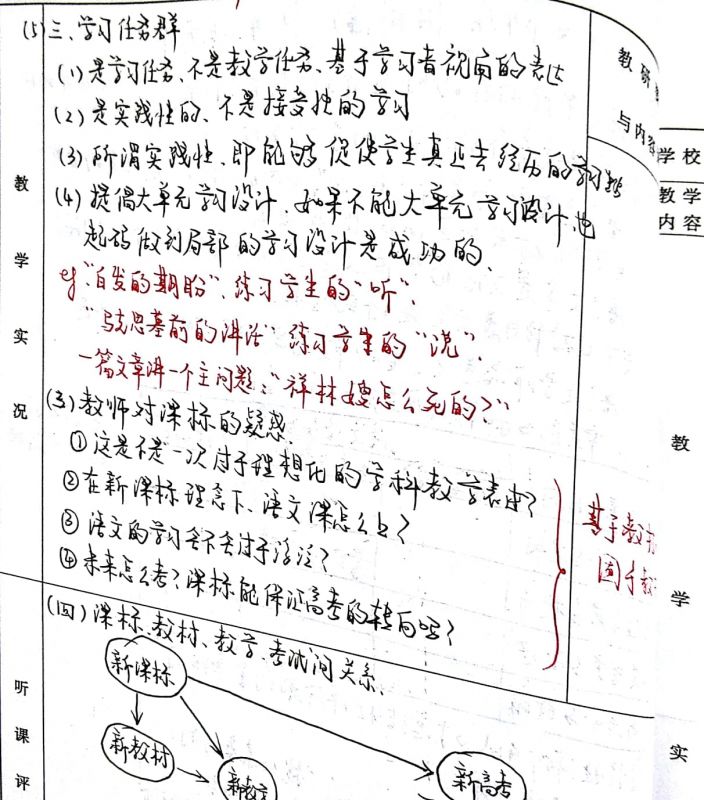 (5)三、学习任务群
(1)是学习任务、不是教学任务、基于学习者视角的表达
(2)是实践性的、不是接受性的学习
(3)所谓实践性、即能够促使学生真正去经历的学习
(4)提倡大单元学习设计、如果不能大单元学习设计也
起码做到局部的学习设计是成功的、
eg:"白发的期盼"、练习学生的"听"、
"马克思墓前的讲话"练习学生的"说"、
一篇文章讲一个主问题:"祥林嫂怎么死的?"
(三)教师对课标的疑惑、
①这是不是一次过于理想化的学科教学表述?
②在新课标理念下、语文课怎么上?
③语文的学习会不会过于浮泛?
④未来怎么考?课标能保证高考的转向吗?
(四)课标、教材、教学、考试间关系、
新课标
新教材
新高考
基于教材
教学实况
听课评
教研
与内容
学校
教学
内容
教学实